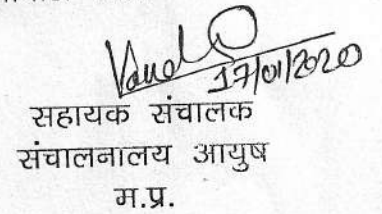 17/01/2020
सहायक संचालक
संचालनालय आयुष
म.प्र.